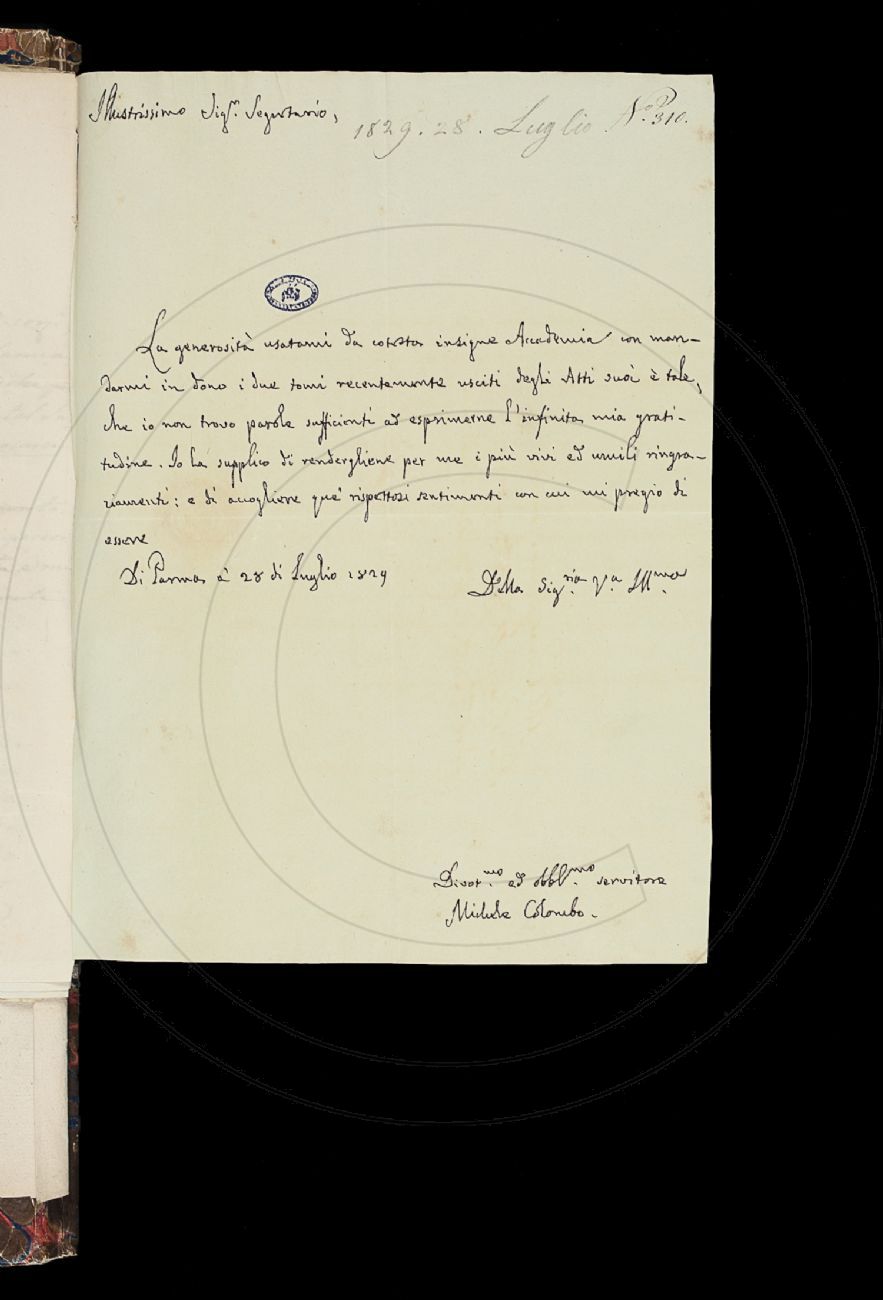 Illustrissimo Sig.r Segretario,
1829. 28. Luglio N.o 310.
La generosità usatami da cotesta insigne Accademia con man-
darmi in dono i due tomi recentemente usciti degli Atti suoi è tale,
che io non trovo parole sufficienti ad esprimerne l'infinita mia grati-
tudine. Io la supplico di rendergliene per me i più vivi ed umili ringra-
ziamenti; e di accogliere que' rispettosi sentimenti con cui mi pregio di
essere
Di Parma a' 28 di Luglio 1829
Della Sig.ria V.a Ill.ma
Divot.mo ed obbl.mo servitore
Michele Colombo.